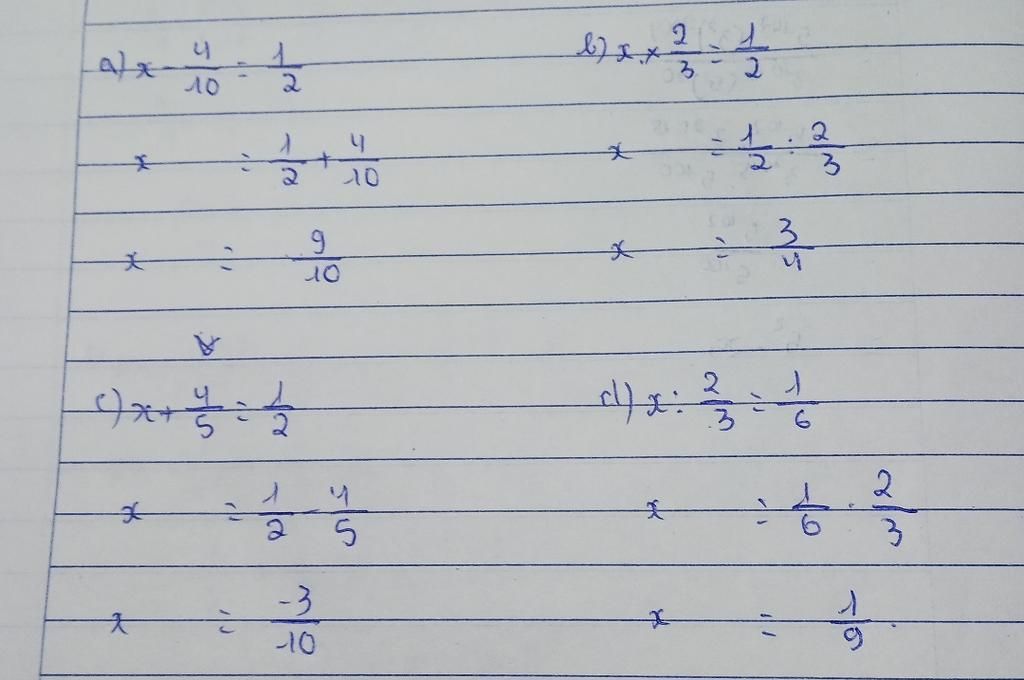 a) x - 4/10 = 1/2
x = 1/2 + 4/10
x = 9/10
b) x × 2/3 = 1/2
x = 1/2 : 2/3
x = 3/4
c) x + 4/5 = 1/2
x = 1/2 - 4/5
x = -3/10
d) x : 2/3 = 1/6
x = 1/6 . 2/3
x = 1/9.